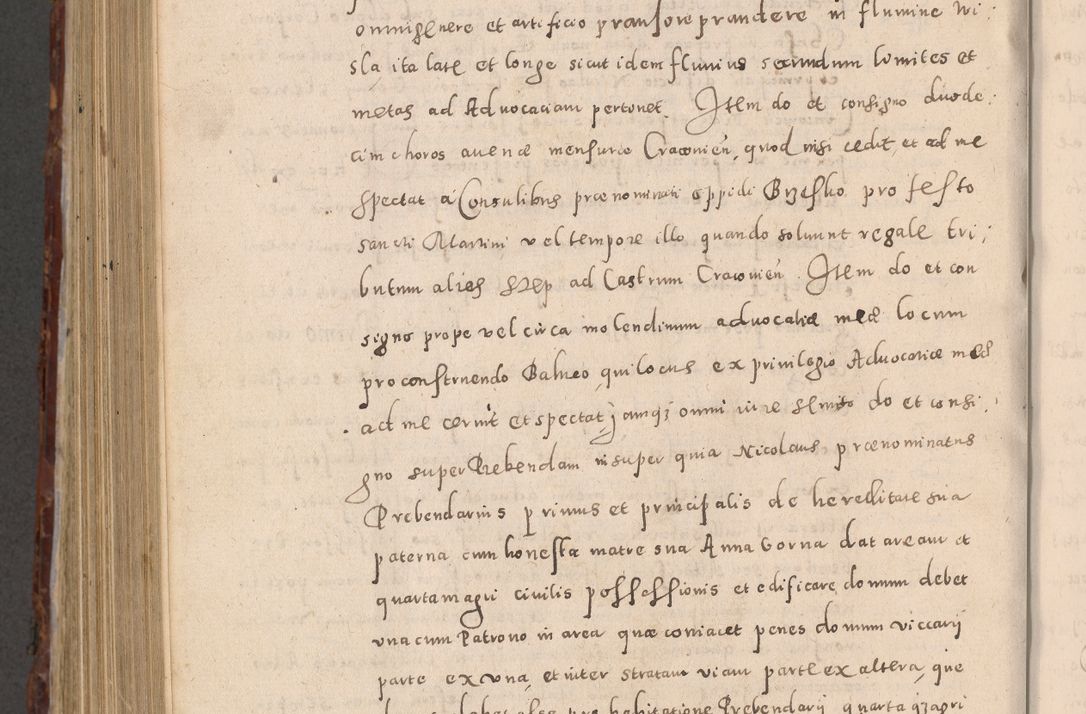 omni genere et artificio pransore prandere in flumine Wi:
sla ita late et longe sicut idem fluvius secundum lumites et
metas ad Advocaciam pertinet. Item do et consigno duode:
cim choros avenæ mensuræ Cracovien, quod nisi cedit, et ad me
spectat a Consulibus prænominati oppidi Brzesko pro festo
sancti Martini vel tempore illo quando solvunt regale tri:
butum alies Sep ad Castrum Cracovien. Item do et con
signo prope vel circa molendinum advocatiæ meæ locum
pro construendo Balneo, qui locus ex privilegio Advocatiæ meæ
ad me cernit et spectat, jamqz omni jure do et consi:
gno super Prebendam insuper quia Nicolaus prænominatus
Prebendarius primus et principalis de hereditate sua
paterna cum honesta matre sua Anna Gorna dat aream et
quartam agri civilis possessionis et edificare domum debet
una cum Patrono in area quæ coniacet penes domum viccarij
parte ex una, et inter stratam viam parte ex altera, que
pro habitatione Prebendarij quarta qz agri